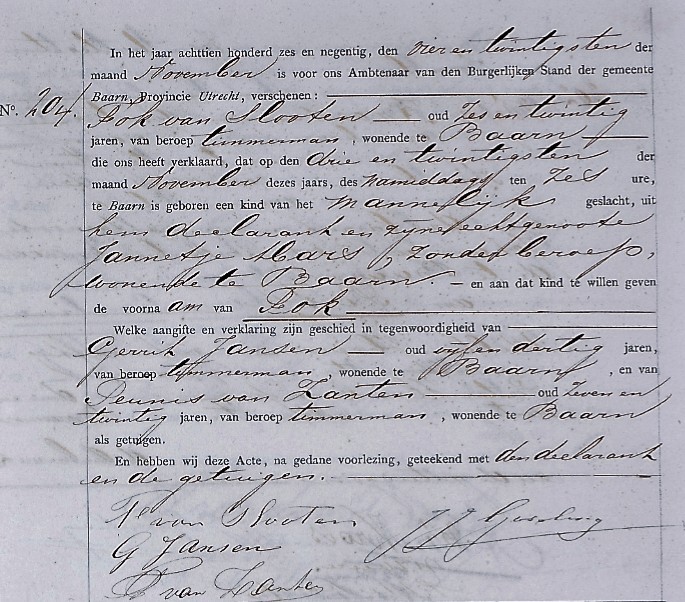 In het jaar achttien honderd zes en negentig, den vier en twintigsten der
maand November is voor ons Ambtenaar van den Burgerlijken Stand der gemeente
Baarn, Provincie Utrecht, verschenen:
No. 204.
Fok van Slooten oud zes en twintig
jaren, van beroep timmerman, wonende te Baarn
die ons heeft verklaard, dat op den drie en twintigsten der
maand November dezes jaars, des namiddags ten zes ure,
te Baarn is geboren een kind van het mannelijk geslacht, uit
hem declarant en zijne echtgenoote
Jannetje Mars, zonder beroep,
wonende te Baarn. — en aan dat kind te willen geven
de voornaam van Fok
Welke aangifte en verklaring zijn geschied in tegenwoordigheid van
Gerrit Jansen oud vijf en dertig jaren,
van beroep timmerman, wonende te Baarn, en van
Teunis van Zanten oud zeven en
twintig jaren, van beroep timmerman, wonende te Baarn
als getuigen.
En hebben wij deze Acte, na gedane voorlezing, geteekend met den declarant
en de getuigen.
F van Slooten
G Jansen
T van Zanten